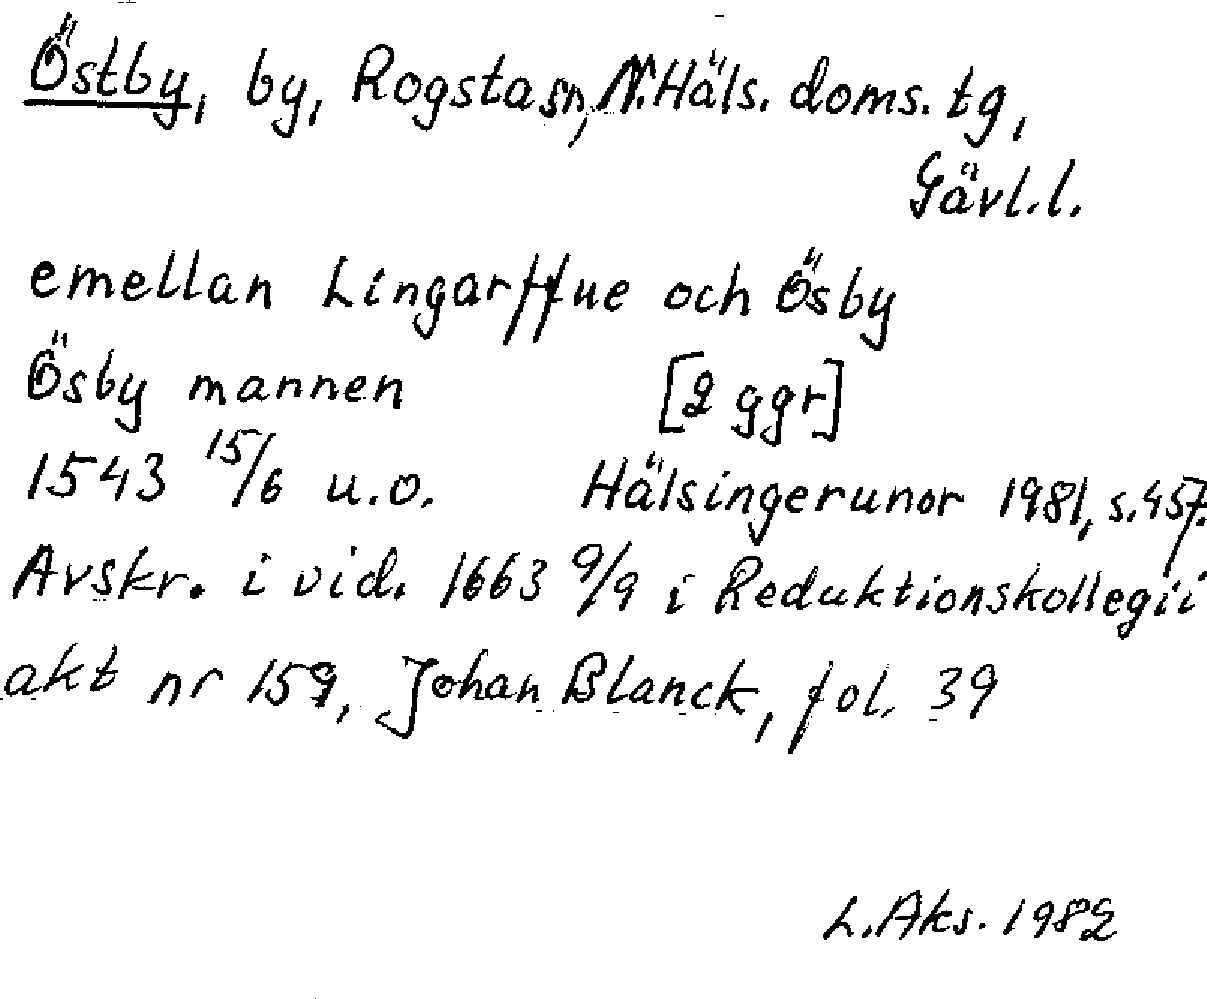 Östby, by, Rogsta sn, N. Häls. doms. tg,
Gävl. l.
emellan Lingarffue och Ösby
Ösby mannen [2 ggr]
1543 15/6 u.o. Hälsingerunor 1981, s. 457.
Avskr. i vid. 1663 9/9 i Reduktionskollegii
akt nr 159, Johan Blanck, fol. 39
L. Aks. 1982